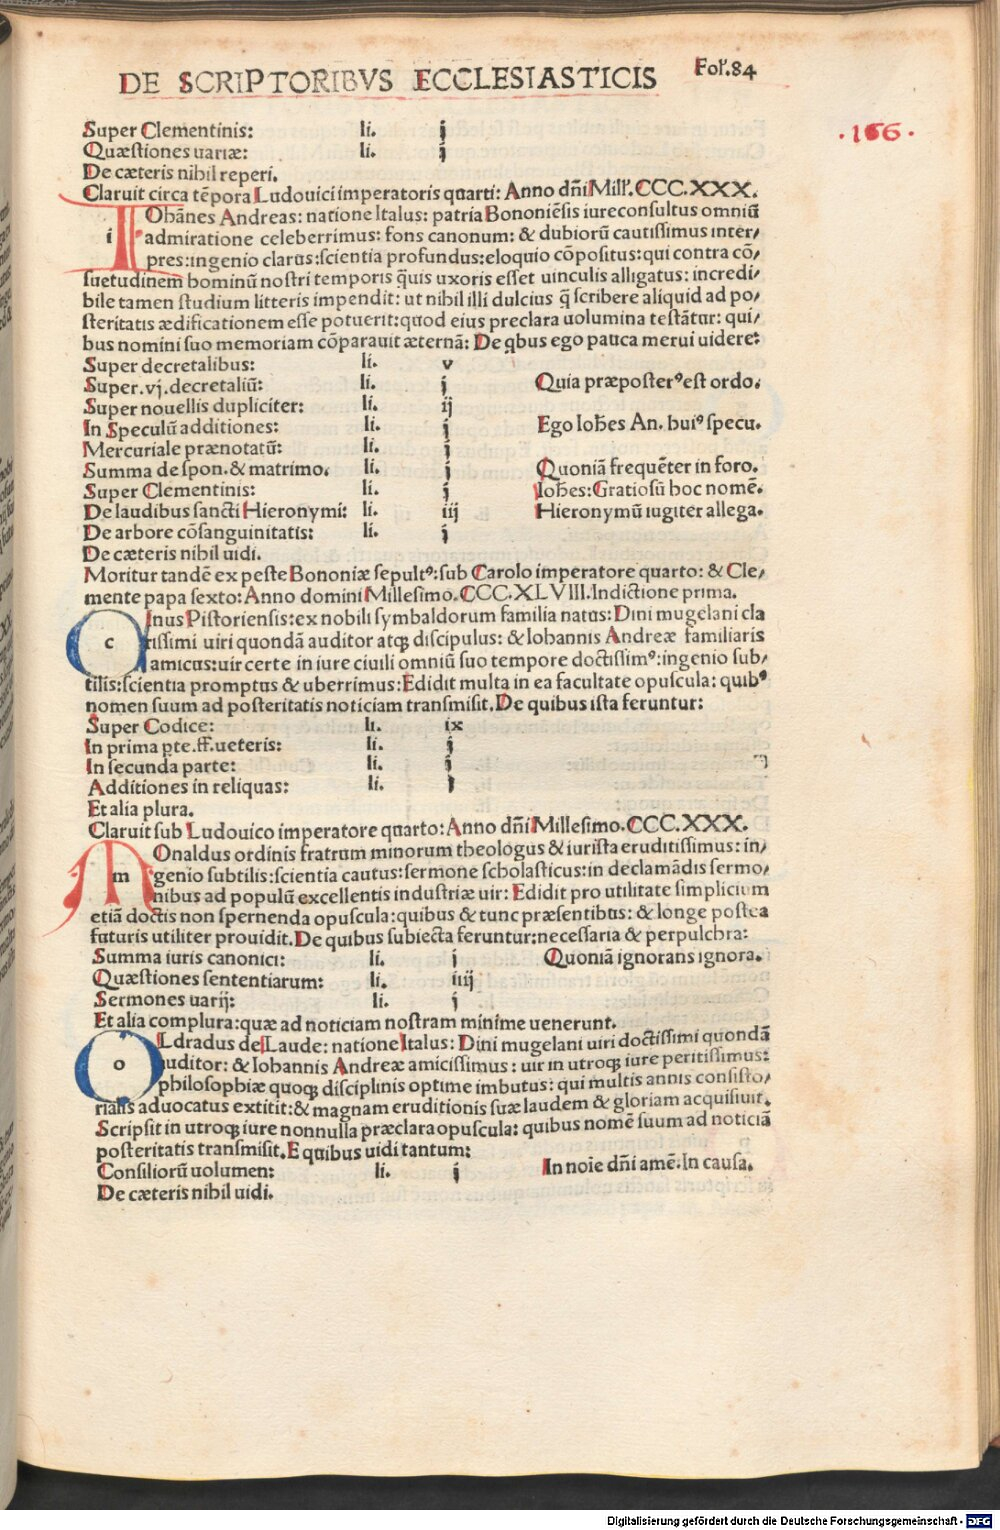 DE SCRIPTORIBVS ECCLESIASTICIS Foł.84
.166.
Super Clementinis: li. j
Quæstiones uariæ: li. j
De cæteris nihil reperi.
Claruit circa tēpora Ludouici imperatoris quarti: Anno dñi Mill'. CCC.XXX.
i Iohānes Andreas: natione Italus: patria Bononiēsis iureconsultus omniū
admiratione celeberrimus: fons canonum: & dubiorū cautissimus inter/
pres: ingenio clarus: scientia profundus: eloquio cōpositus: qui contra cō/
suetudinem hominū nostri temporis q̄uis uxoris esset uinculis alligatus: incredi/
bile tamen studium litteris impendit: ut nihil illi dulcius q̄ scribere aliquid ad po/
steritatis ædificationem esse potuerit: quod eius preclara uolumina testātur: qui/
bus nomini suo memoriam cōparauit æternā: De qbus ego pauca merui uidere:
Super decretalibus: li. v
Super .vj. decretaliū: li. j Quia præposterꝰ est ordo.
Super nouellis dupliciter: li. ij
In Speculū additiones: li. j Ego Ioħes An. huiꝰ specu.
Mercuriale prænotatū: li. j
Summa de spon. & matrimo. li. j Quoniā frequēter in foro.
Super Clementinis: li. j Ioħes: Gratiosū hoc nomē.
De laudibus sancti Hieronymi: li. iij Hieronymū iugiter allega.
De arbore cōsanguinitatis: li. j
De cæteris nihil uidi.
Moritur tandē ex peste Bononiæ sepultꝰ: sub Carolo imperatore quarto: & Cle/
mente papa sexto: Anno domini Millesimo. CCC.XLVIII. Indictione prima.
c Cinus Pistoriensis: ex nobili symbaldorum familia natus: Dini mugelani cla
rissimi uiri quondā auditor atqꝫ discipulus: & Iohannis Andreæ familiaris
amicus: uir certe in iure ciuili omniū suo tempore doctissimꝰ: ingenio sub/
tilis: scientia promptus & uberrimus: Edidit multa in ea facultate opuscula: quibꝰ
nomen suum ad posteritatis noticiam transmisit. De quibus ista feruntur:
Super Codice: li. ix
In prima pte .ff. ueteris: li. j
In secunda parte: li. j
Additiones in reliquas: li. j
Et alia plura.
Claruit sub Ludouico imperatore quarto: Anno dñi Millesimo. CCC.XXX.
m Monaldus ordinis fratrum minorum theologus & iurista eruditissimus: in/
genio subtilis: scientia cautus: sermone scholasticus: in declamādis sermo/
nibus ad populū excellentis industriæ uir: Edidit pro utilitate simplicium
etiā doctis non spernenda opuscula: quibus & tunc præsentibus: & longe postea
futuris utiliter prouidit. De quibus subiecta feruntur: necessaria & perpulchra:
Summa iuris canonici: li. j Quoniā ignorans ignora.
Quæstiones sententiarum: li. iiij
Sermones uarij: li. j
Et alia complura: quæ ad noticiam nostram minime uenerunt.
o Oldradus de Laude: natione Italus: Dini mugelani uiri doctissimi quondā
auditor: & Iohannis Andreæ amicissimus: uir in utroqꝫ iure peritissimus:
philosophiæ quoqꝫ disciplinis optime imbutus: qui multis annis consisto/
rialis aduocatus extitit: & magnam eruditionis suæ laudem & gloriam acquisiuit.
Scripsit in utroqꝫ iure nonnulla præclara opuscula: quibus nomē suum ad noticiā
posteritatis transmisit. E quibus uidi tantum:
Consiliorū uolumen: li. j In noīe dñi amē. In causa.
De cæteris nihil uidi.
Digitalisierung gefördert durch die Deutsche Forschungsgemeinschaft - DFG